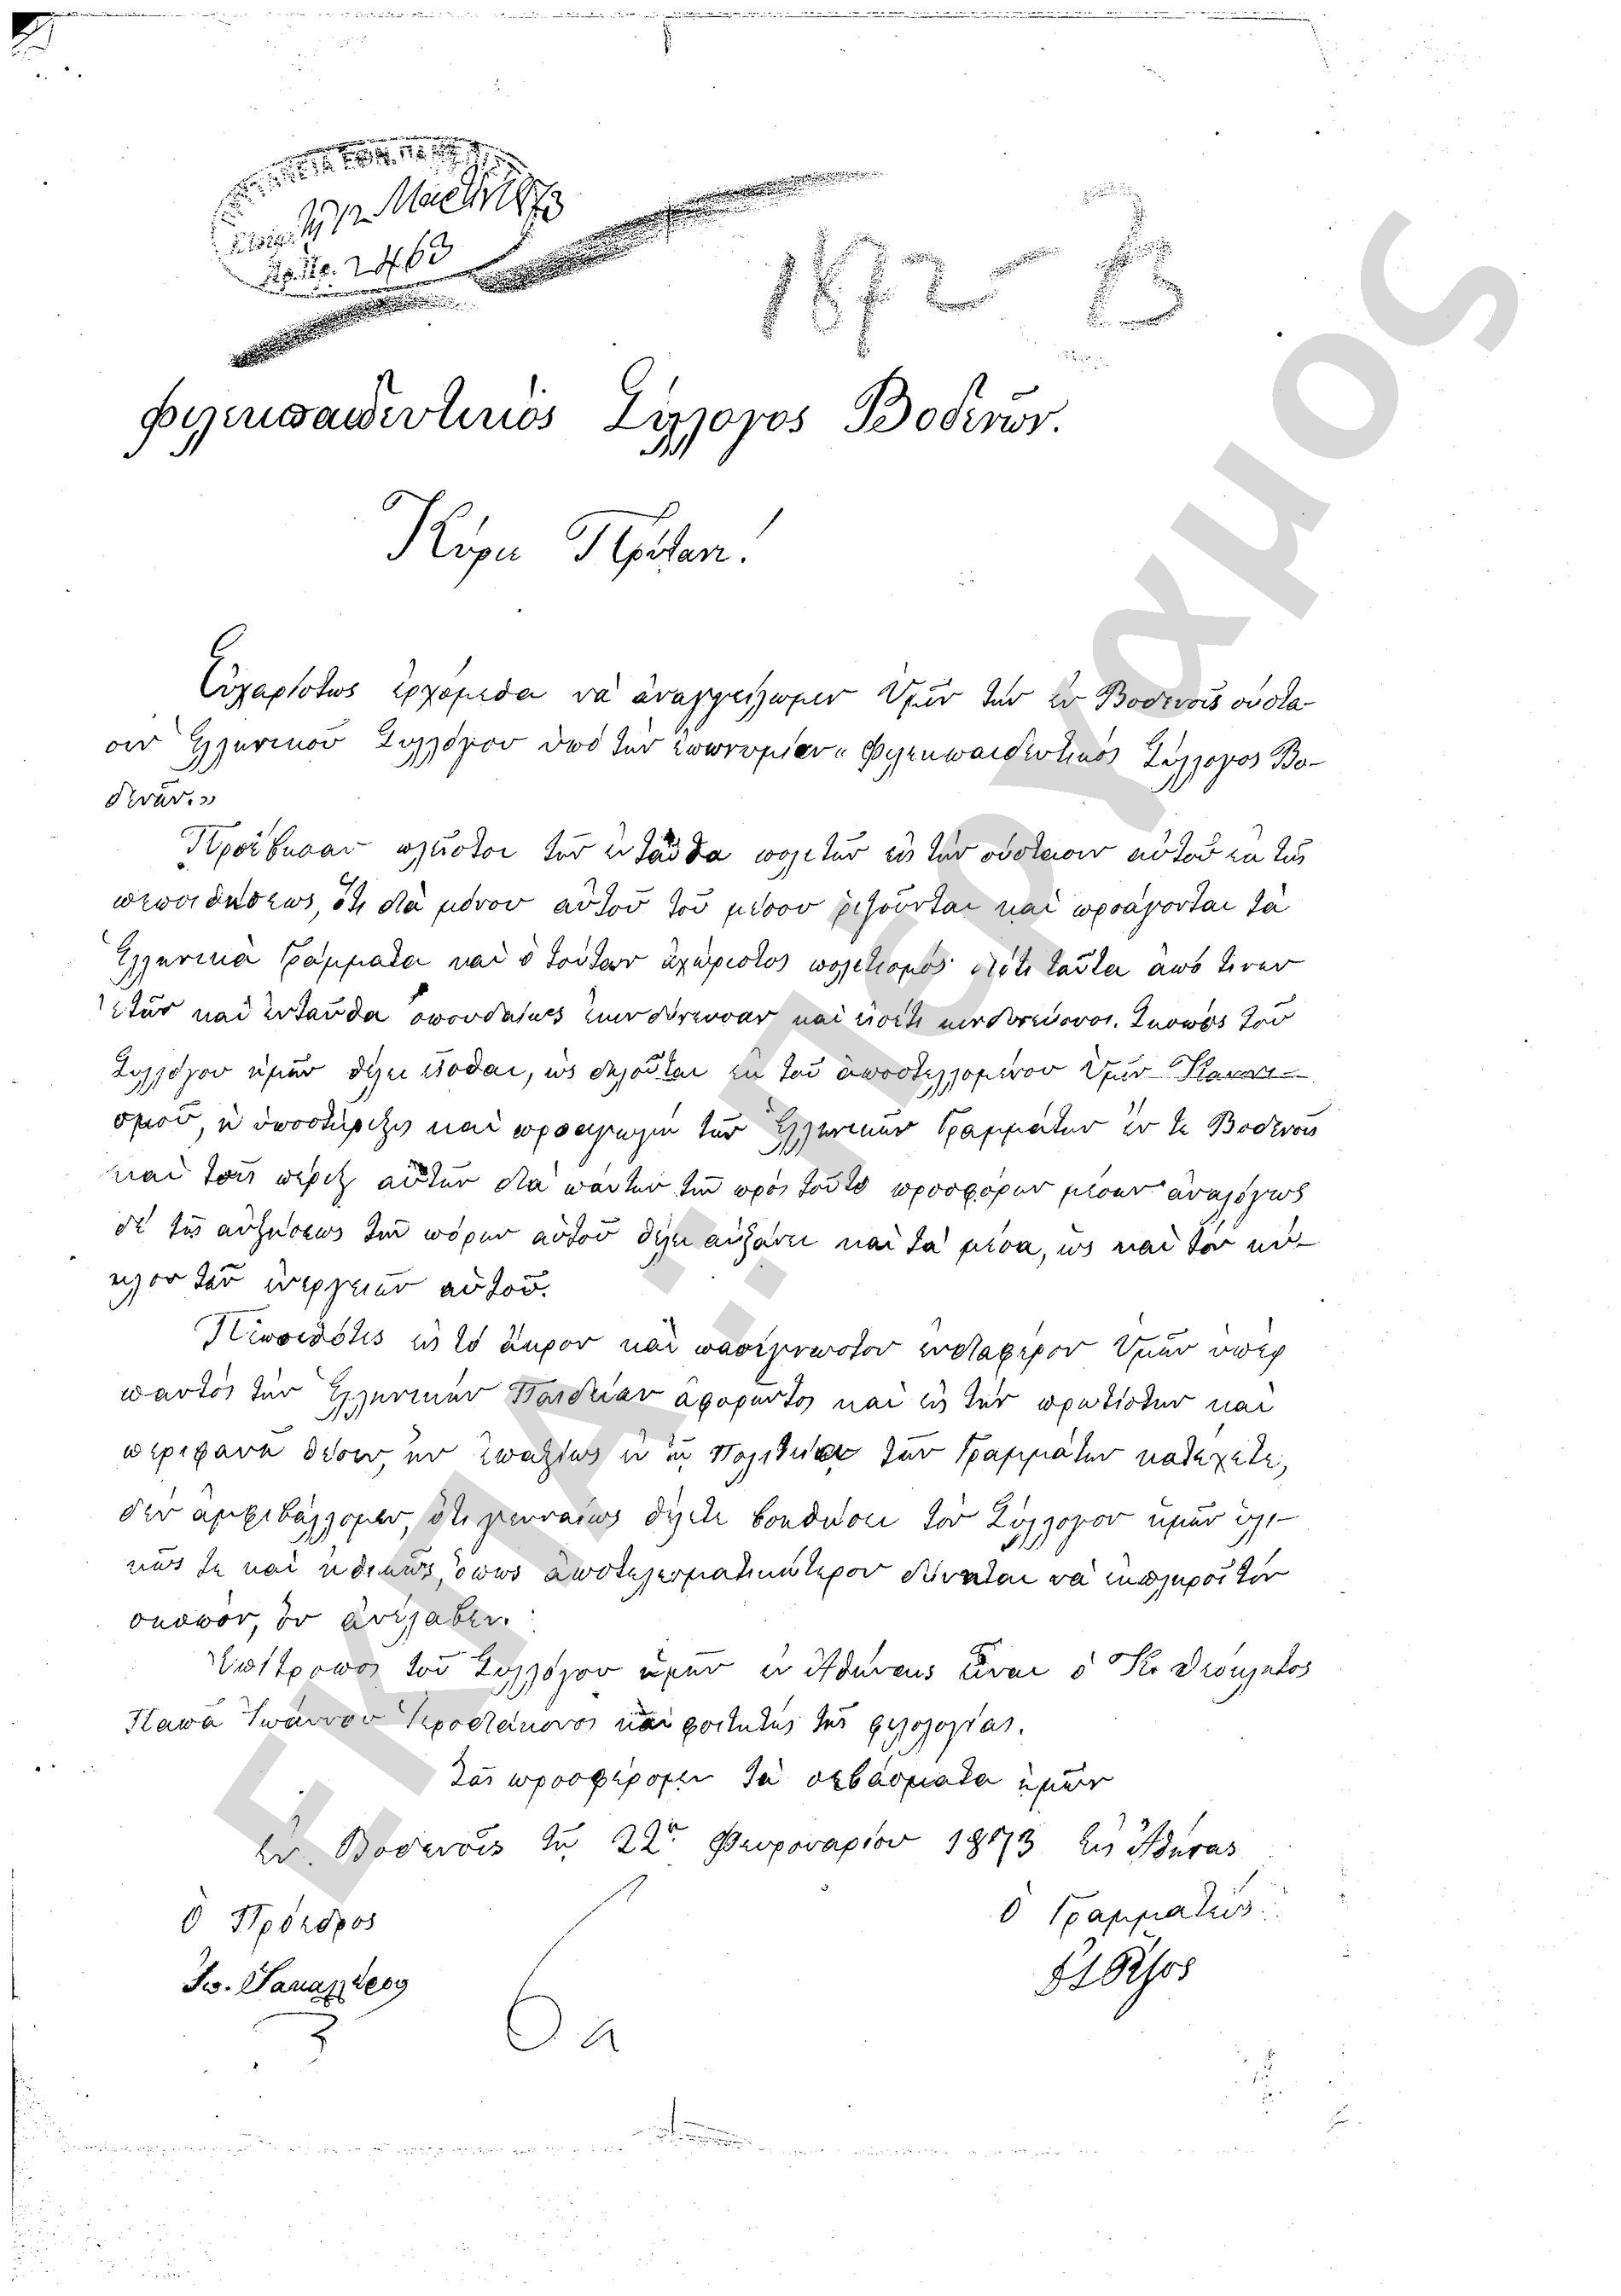 τῇ 12 Μαρτ 1873
Αρ. Πρ. 2463
1872-3
Φιλεκπαιδευτικὸς Σύλλογος Βοδενῶν.
Κύριε Πρύτανι!
Εὐχαρίστως ἐρχόμεθα νὰ ἀναγγείλωμεν Ὑμῖν τὴν ἐν Βοδενοῖς σύστα-
σιν Ἑλληνικοῦ Συλλόγου ὑπὸ τὴν ἐπωνυμίαν "Φιλεκπαιδευτικὸς Σύλλογος Βο-
δενῶν.»
Προέβησαν πλεῖστοι τῶν ἐνταῦθα πολιτῶν εἰς τὴν σύστασιν αὐτοῦ ἐκ τῆς
πεποιθήσεως, ὅτι διὰ μόνου αὐτοῦ τοῦ μέσου ῥιζοῦνται καὶ προάγονται τὰ
Ἑλληνικὰ Γράμματα καὶ ὁ τούτων ἀχώριστος πολιτισμός· διότι ταῦτα ἀπό τινων
ἐτῶν καὶ ἐνταῦθα σπουδαίως ἐκινδύνευσαν καὶ εἰσέτι κινδυνεύουσι. Σκοπὸς τοῦ
Συλλόγου ἡμῶν θέλει εἶσθαι, ὡς δηλοῦται ἐκ τοῦ ἀποστελλομένου Ὑμῖν Κανονι-
σμοῦ, ἡ ὑποστήριξις καὶ προαγωγὴ τῶν Ἑλληνικῶν Γραμμάτων ἔν τε Βοδενοῖς
καὶ τοῖς πέριξ αὐτῶν διὰ πάντων τῶν πρὸς τοῦτο προσφόρων μέσων· ἀναλόγως
δὲ τῆς αὐξήσεως τῶν πόρων αὐτοῦ θέλει αὐξάνει καὶ τὰ μέσα, ὡς καὶ τὸν κύ-
κλον τῶν ἐνεργειῶν αὐτοῦ.
Πεποιθότες εἰς τὸ ἄκρον καὶ πασίγνωστον ἐνδιαφέρον Ὑμῶν ὑπὲρ
παντὸς τὴν Ἑλληνικὴν Παιδείαν ἀφορῶντος καὶ εἰς τὴν πρωτίστην καὶ
περιφανῆ θέσιν, ἣν ἐπαξίως ἐν τῇ Πολιτείᾳ τῶν Γραμμάτων κατέχετε,
δὲν ἀμφιβάλλομεν, ὅτι γενναίως θέλετε βοηθήσει τὸν Σύλλογον ἡμῶν ὑλι-
κῶς τε καὶ ἠθικῶς, ὅπως ἀποτελεσματικώτερον δύνηται νὰ ἐκπληροῖ τὸν
σκοπὸν, ὃν ἀνέλαβεν.
Ἐπίτροπος τοῦ Συλλόγου ἡμῶν ἐν Ἀθήναις εἶναι ὁ Κος Θεόκλητος
Παπᾶ Ἰωάννου Ἱεροδιάκονος καὶ φοιτητὴς τῆς φιλολογίας.
Σᾶς προσφέρομεν τὰ σεβάσματα ἡμῶν
Ἐν Βοδενοῖς τῇ 22ᾳ Φευρουαρίου 1873 Εἰς Ἀθήνας
Ὁ Πρόεδρος
Ὁ Γραμματεύς
Ἰω.
6 a
ΕΚΠΑ: Ιστ. Αρχ.